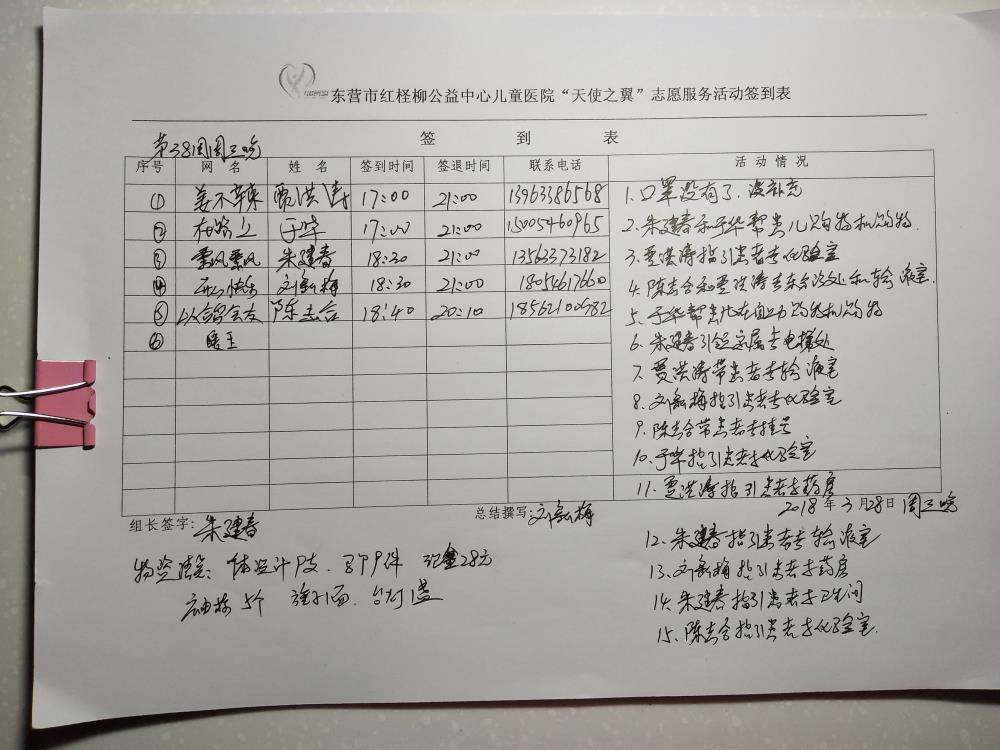 东营市红柽柳公益中心儿童医院“天使之翼”志愿服务活动签到表
签 到 表
第38周周三晚
序号 网名 姓名 签到时间 签退时间 联系电话 活动情况
① 姜不辣 贾洪涛 17:00 21:00 13963386568
② 在路上 于华 17:00 21:00 15005460965
③ 飘飘 朱建春 18:30 21:00 13563373182
④ 刘敏梅 18:30 21:00 18054617660
⑤ 以诺会友 陈志合 18:40 20:10 18562100782
⑥ 暖王
1.口罩没有了,没补充
2.朱建春和于华帮患儿购物机购物.
3.贾洪涛指引患者去化验室
4.陈志合和贾洪涛去东台设处和输液室.
5.于华帮患儿在自助购物机购物
6.朱建春引领家属去电梯处
7.贾洪涛带患者去输液室
8.刘敏梅指引患者去化验室
9.陈志合带患者去挂号
10.于华指引患者去化验室
11.贾洪涛指引患者去药房
组长签字:朱建春 总结撰写:刘敏梅 2018年3月28日周三晚
12.朱建春指引患者去输液室
13.刘敏梅指引患者去药房
14.朱建春指引患者去卫生间
15.陈志合指引患者去化验室.
物资清点:体温计 支. 件 现金28元
5个 面.台灯1盏